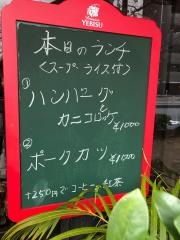 YEBISU
本日のランチ
〈スープ、ライス付〉
① ハンバーグと
カニコロッケ ¥1000
② ポークカツ ¥1000
+250円でコーヒー、紅茶